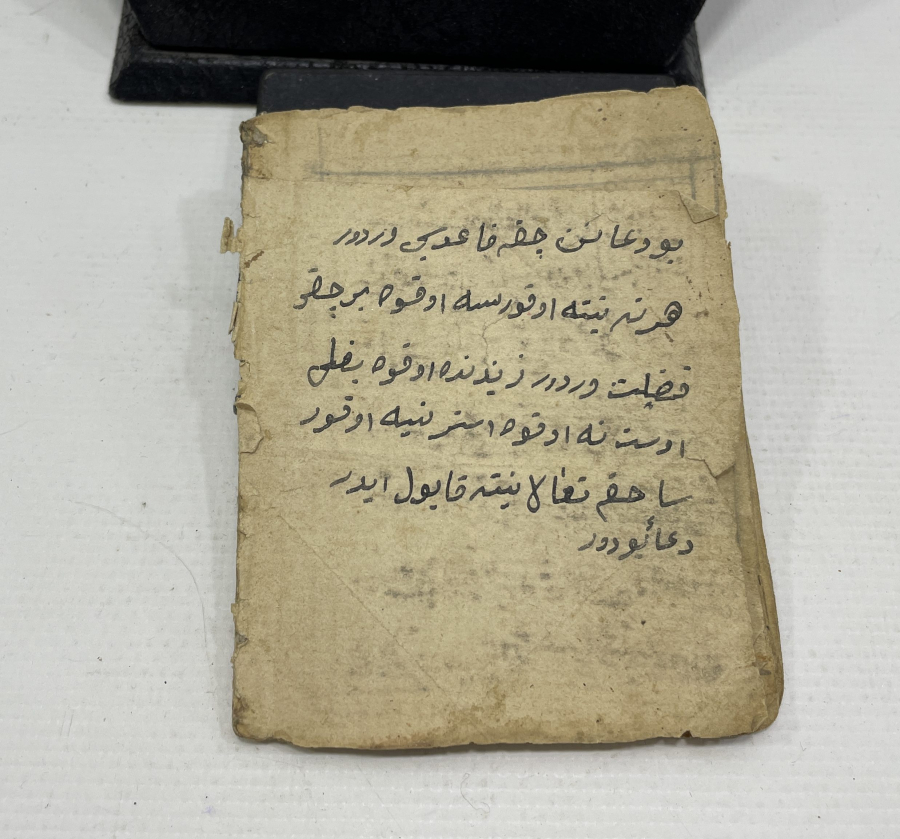 بو دعانىن چقه فاعدسي وردور
هر نه نيته اوقورسه اوقوه بر چقو
فضلت وردور زينده اوقوه بفلي
اوست نه اوقوه استر نيه اوقور
سا حقم تعالا نيته قابول ايدر
دعائبودور